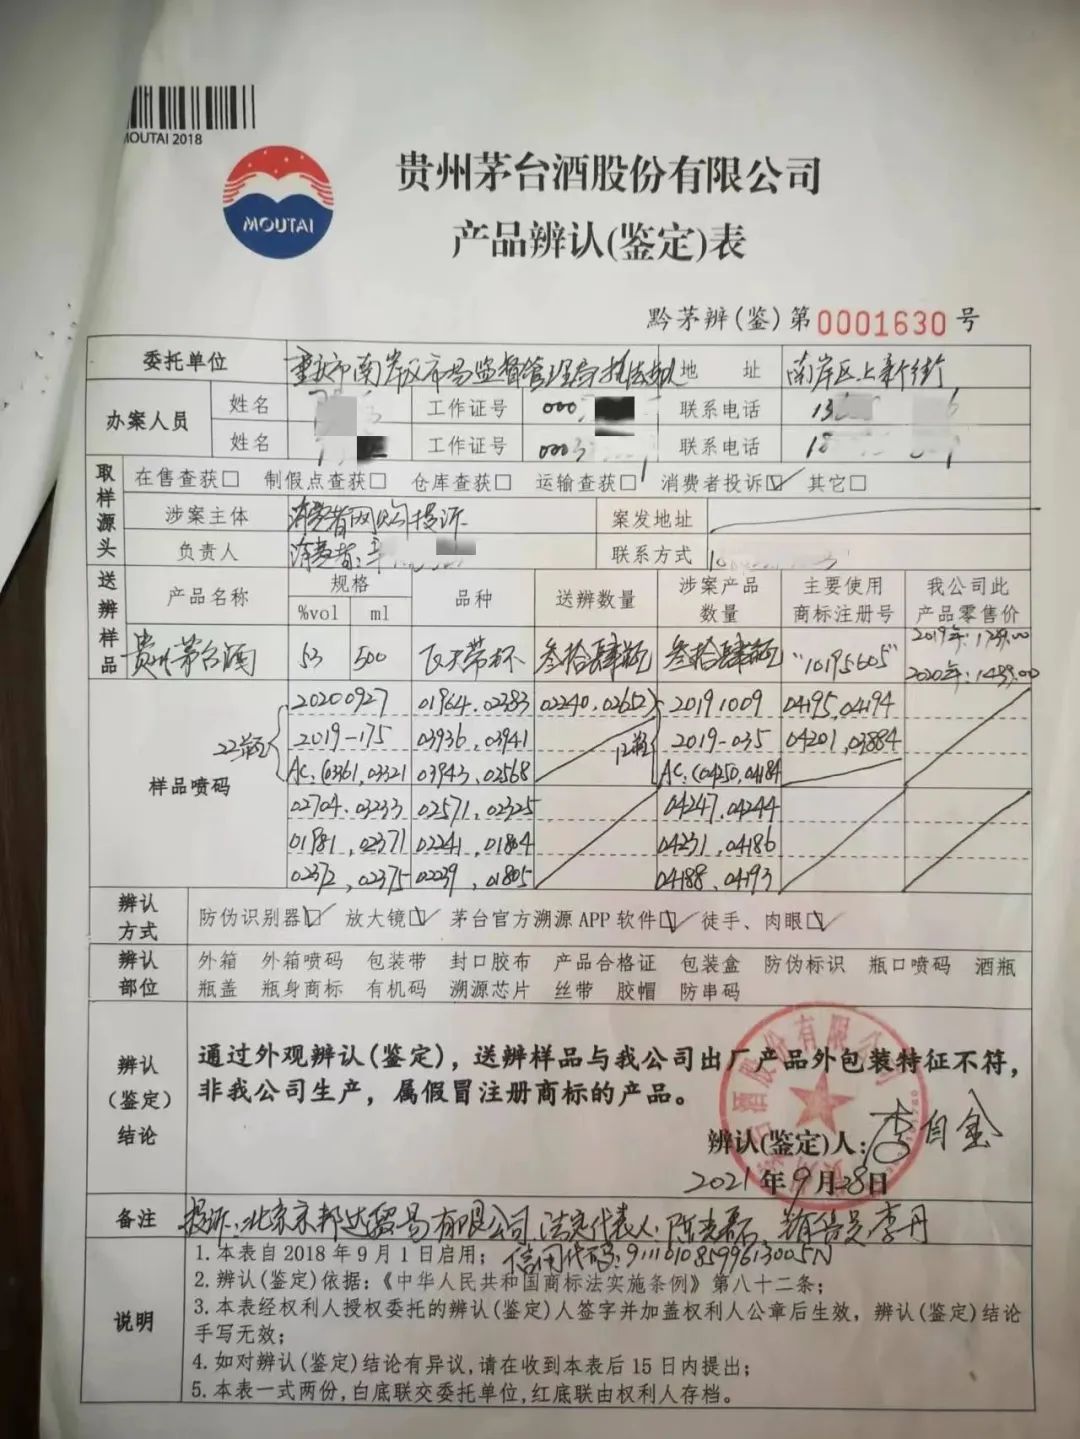 MOUTAI 2018
MOUTAI
贵州茅台酒股份有限公司
产品辨认(鉴定)表
黔茅辨(鉴)第0001630号
委托单位 重庆市南岸区市场监督管理局执法支队 地址 南岸区上新街
办案人员 姓名 工作证号 000 联系电话
姓名 工作证号 000 联系电话
取样源头 在售查获□ 制假点查获□ 仓库查获□ 运输查获□ 消费者投诉☑ 其它□
涉案主体 消费者网购投诉 案发地址
负责人 消费者: 联系方式
送辨样品 产品名称 规格 %vol ml 品种 送辨数量 涉案产品数量 主要使用商标注册号 我公司此产品零售价
贵州茅台酒 53 500 飞天带杯 叁拾肆瓶 叁拾肆瓶 "10195605" 2019年:1299.00
2020年:1499.00
样品喷码
22瓶 20200927 01964.02383 02240.02652 12瓶 20191009 04195.04194
2019-175 03936.03941 2019-035 04201.03884
AC:(03361,03321 03943.02568 AC:(04250,04184
02704.03233 02571.02325 04247.04244
01981,02371 02241.01804 04231.04186
02372,02375 02239.01805 04188.04193
辨认方式 防伪识别器☑ 放大镜☑ 茅台官方溯源APP软件☑ 徒手、肉眼☑
辨认部位 外箱 外箱喷码 包装带 封口胶布 产品合格证 包装盒 防伪标识 瓶口喷码 酒瓶
瓶盖 瓶身商标 有机码 溯源芯片 丝带 胶帽 防串码
辨认(鉴定)结论
通过外观辨认(鉴定),送辨样品与我公司出厂产品外包装特征不符,
非我公司生产,属假冒注册商标的产品。
辨认(鉴定)人:李自金
2021年9月28日
备注 投诉:北京京邦达贸易有限公司.法定代表人:陈岩磊,销售员李丹
信用代码:91110108599613005N
说明
1.本表自2018年9月1日启用;
2.辨认(鉴定)依据:《中华人民共和国商标法实施条例》第八十二条;
3.本表经权利人授权委托的辨认(鉴定)人签字并加盖权利人公章后生效,辨认(鉴定)结论
手写无效;
4.如对辨认(鉴定)结论有异议,请在收到本表后15日内提出;
5.本表一式两份,白底联交委托单位,红底联由权利人存档。